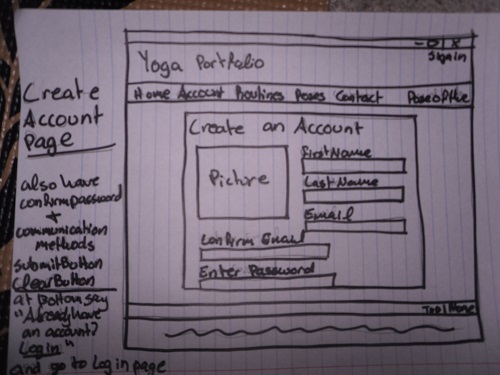 Create
Account
Page
also have
confirm password
+
communication
methods
submit Button
clear Button
at bottom say
"Already have
an account?
Login"
and go to Login page
- □ X
Sign in
Yoga Portfolio
Home Account Routines Poses Contact
Create an Account
Picture
First Name
Last Name
Email
Confirm Email
Enter Password